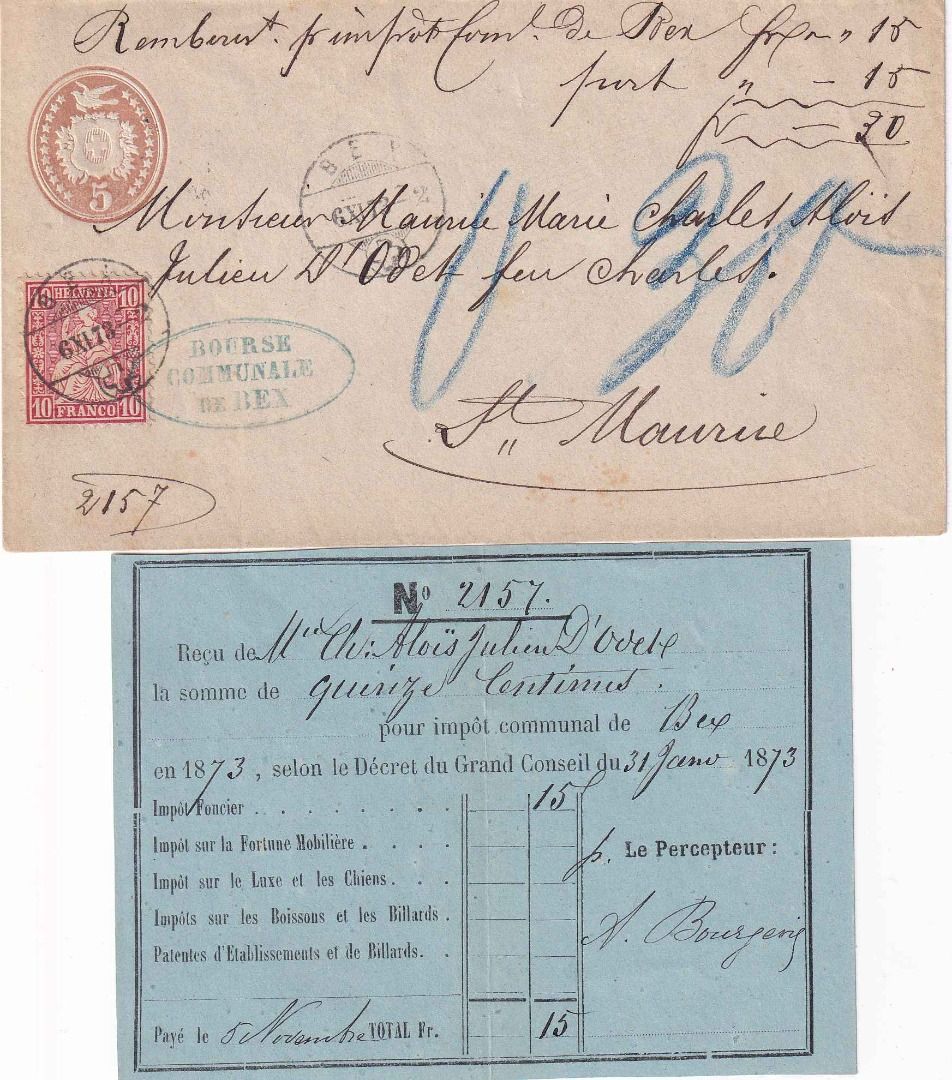 Rembours.t p impôt Com.l de Bex frs " 15
port " - 15
- 30
5
BEX
6 XI 73 - 2
Monsieur Maurice Marie Charles Aloïs
Julien D'Odet feu Charles.
30
HELVETIA
10 10
10 FRANCO 10
BEX
6 XI 73
BOURSE
COMMUNALE
DE BEX
St Maurice
2157
No 2157.
Reçu de Mce Ch: Aloïs Julien D'Odet
la somme de quinze Centimes.
pour impôt communal de Bex
en 1873, selon le Décret du Grand Conseil du 31 Janv 1873
Impôt Foncier . . . . . . . . 15
Impôt sur la Fortune Mobilière . . . .
Impôt sur le Luxe et les Chiens . . .
Impôts sur les Boissons et les Billards .
Patentes d'Etablissements et de Billards. .
p. Le Percepteur :
A. Bourgeois
Payé le 5 Novembre TOTAL Fr. 15